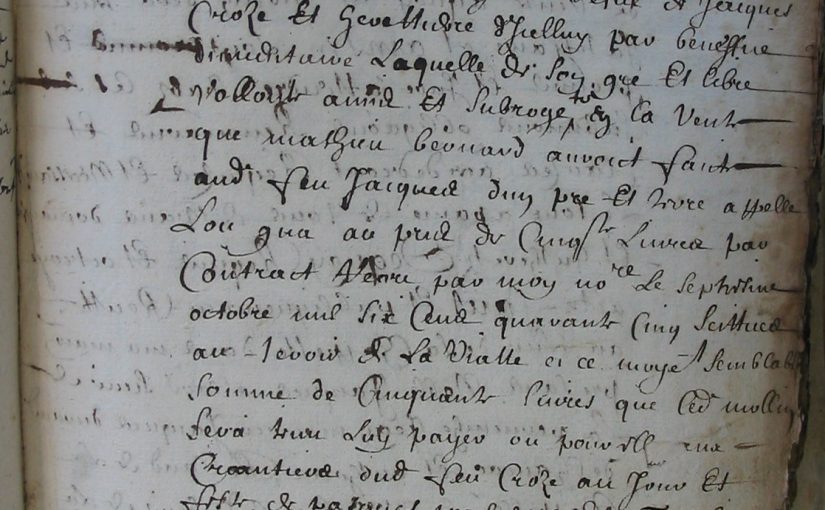 Jacques
Croze Et heretiere d'Icelluy par beneffice
d'inuditaire Laquelle de son gre Et libre
Vollonte a mis Et Subroge en la vente
que mathieu berard auroict faict
aud feu Jacques d'un pre Et terre appelle
Lou gua au pris de Cinqte Livres par
Contract Receu par moy nore Le septiesme
octobre mil six Cens quarante Cinq scittues
au Terroir de La Vialle et ce moyet semblable
Somme de Cinquante livres que led mollin
Sera tenu Luy payer ou pour ell aux
Creantiers dud feu Croze au Jour Et
feste de